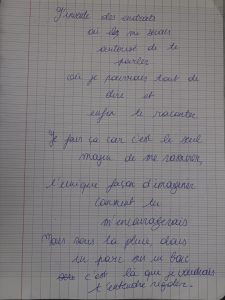 J'invente des endroits
où je me serais
autorisé de te
parler
où je pourrais tout te
dire et
enfin te raconter
Je fais ça car c'est le seul
moyen de me rassurer,
l'unique façon d'imaginer
comment tu
m'encouragerais
Mais sous la pluie, dans
un parc sur un banc
c'est là que je voudrais
t'entendre rigoler.